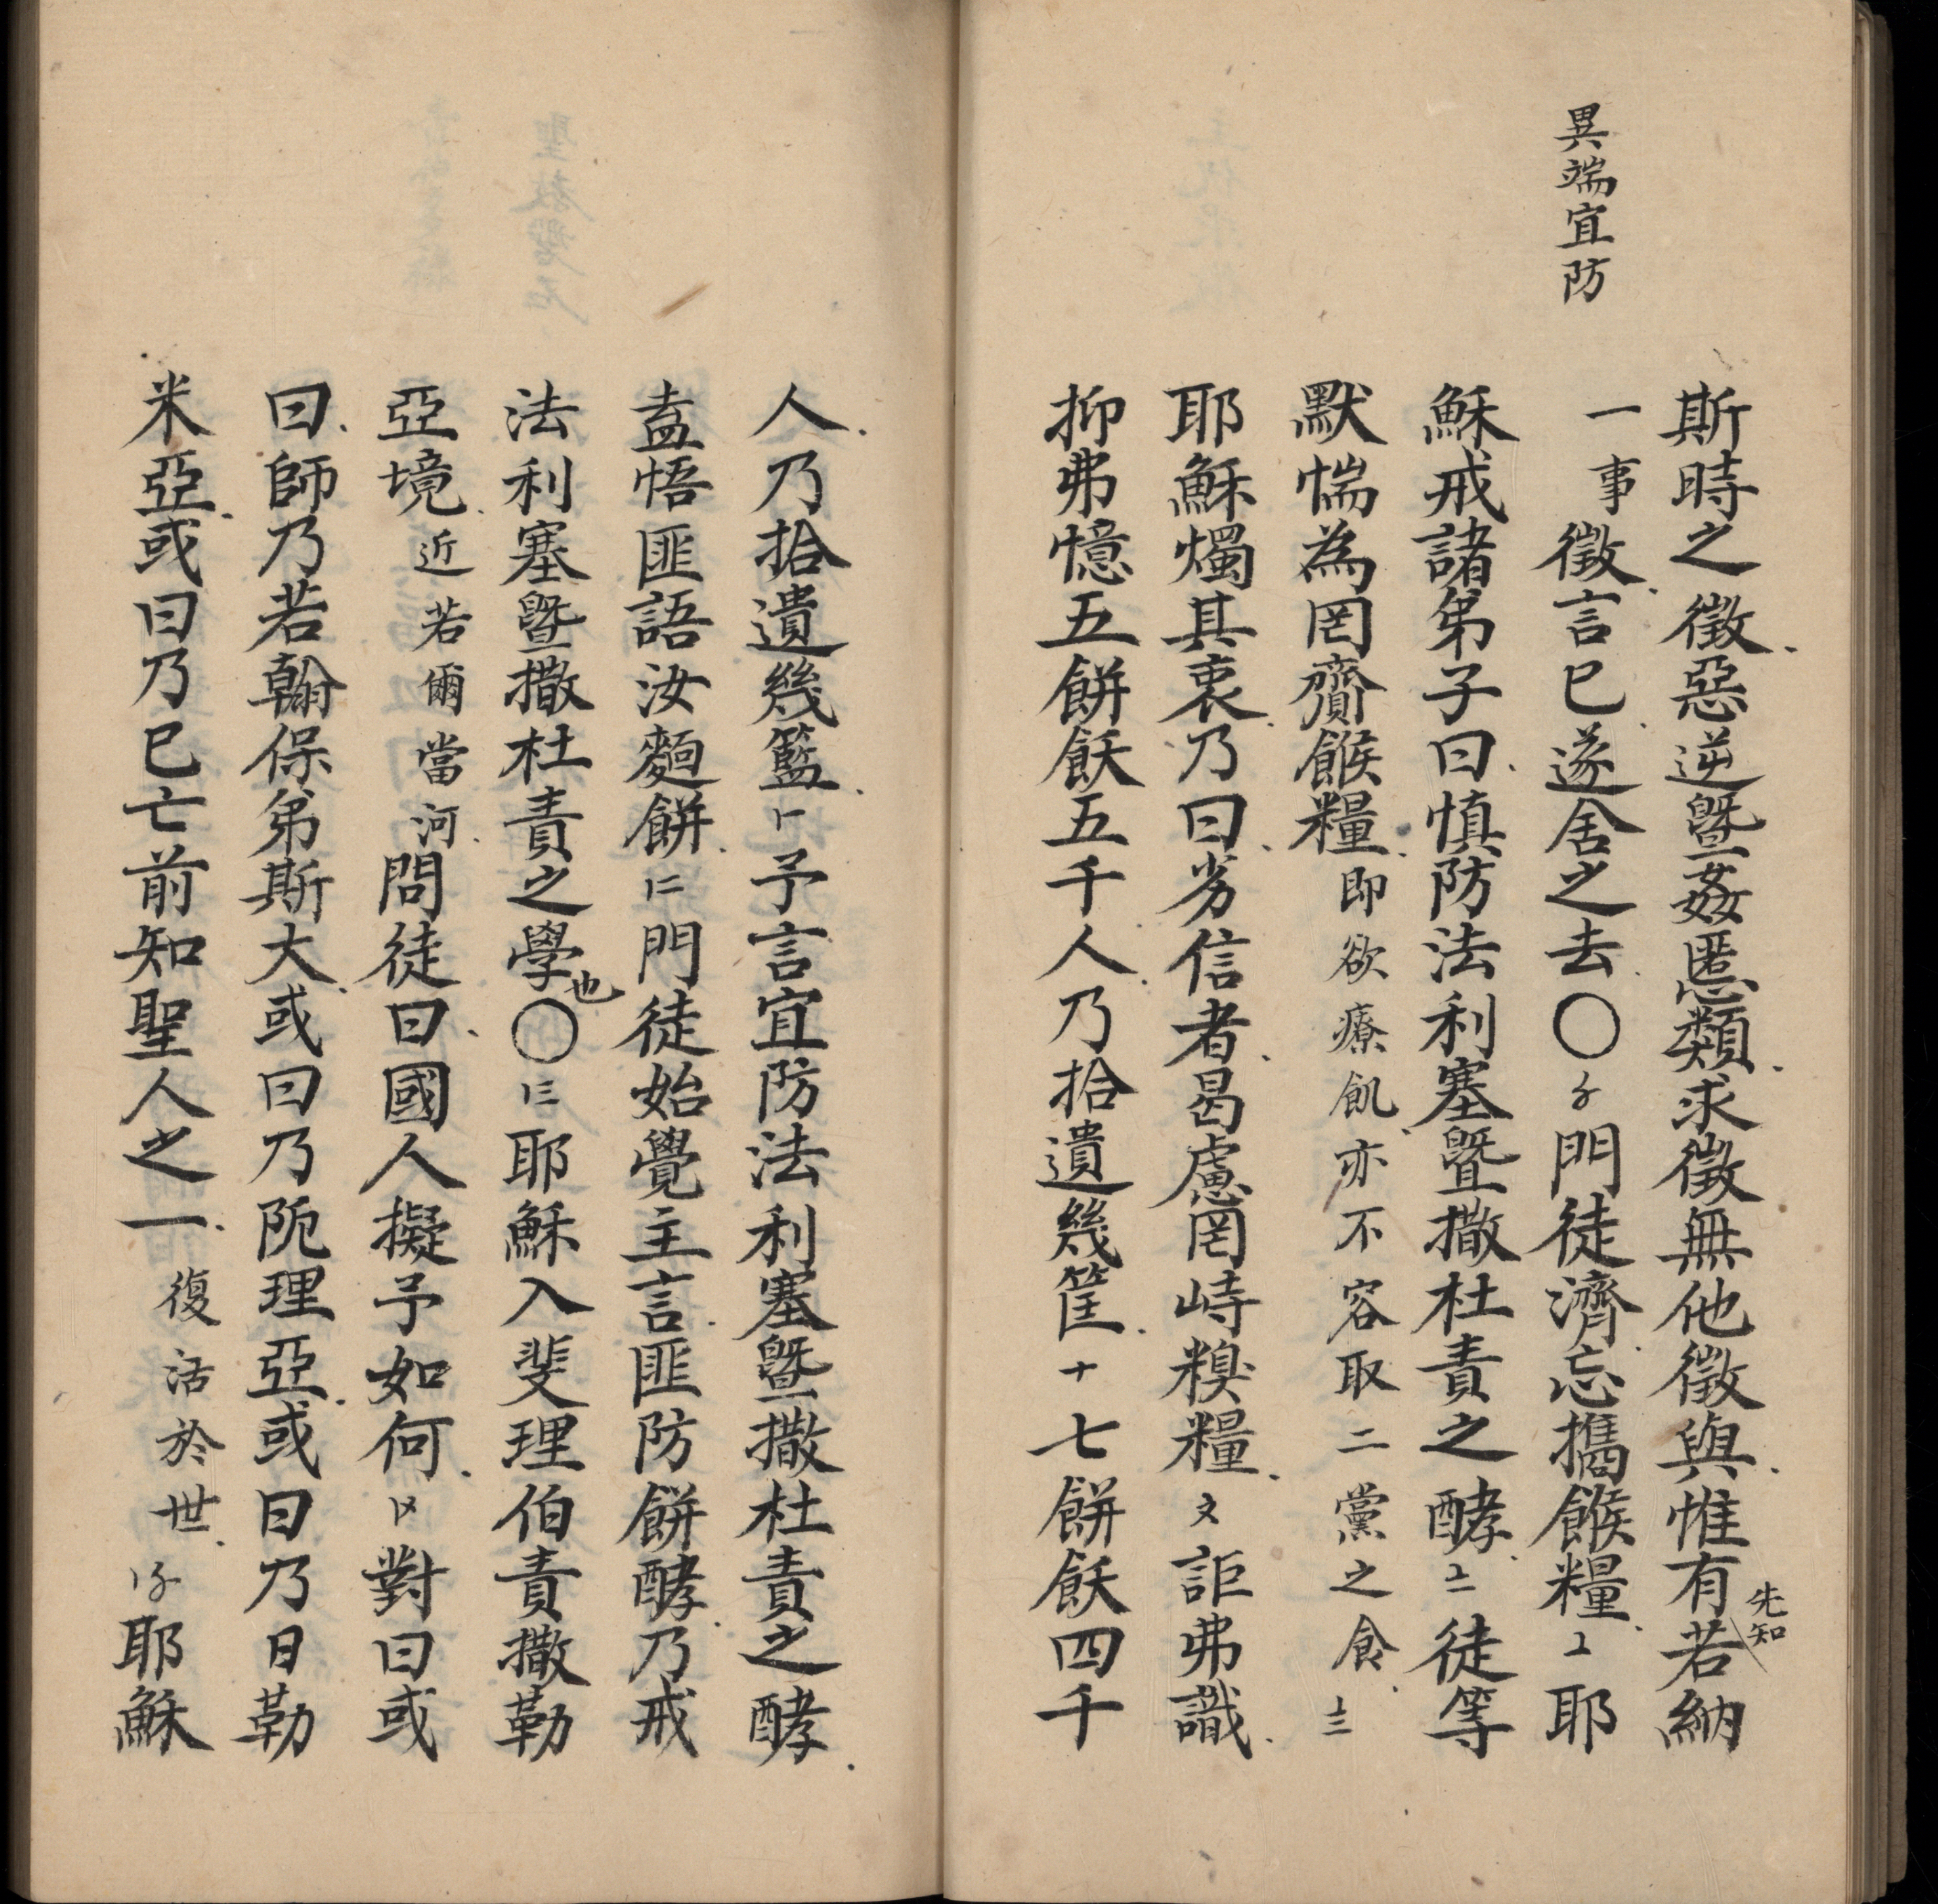 異端宜防
斯時之徵惡逆曁姦慝類求徵無他徵與惟有先知若納
一事徵言巳遂舍之去〇〥門徒濟忘攜餱糧〦耶
穌戒諸弟子曰慎防法利塞曁撒杜責之酵〧徒等
默惴為罔齎餱糧即欲療飢亦不容取二黨之食〨
耶穌燭其衷乃曰劣信者曷慮罔峙糗糧〩詎弗識
抑弗憶五餅飫五千人乃拾遺幾筐十七餅飫四千
人乃拾遺幾籃〡予言宜防法利塞曁撒杜責之酵
盍悟匪語汝麵餅〢門徒始覺主言匪防餅酵乃戒
法利塞曁撒杜責之學也〇〣耶穌入斐理伯責撒勒
亞境近若爾當河問徒曰國人擬予如何〤對曰或
曰師乃若翰保弟斯大或曰乃阨理亞或曰乃日勒
米亞或曰乃巳亡前知聖人之一復活於世〥耶穌